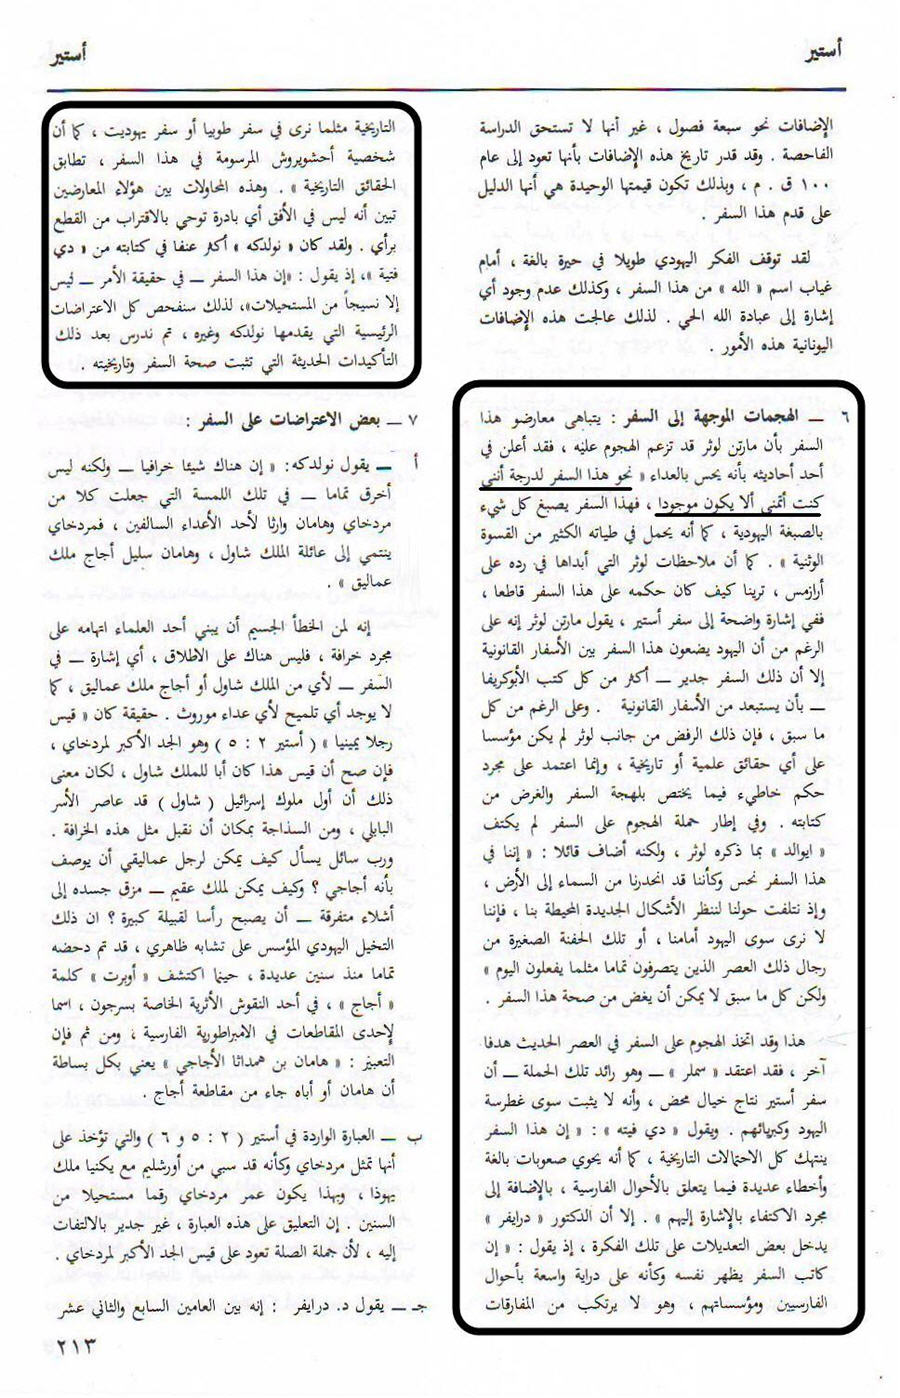 أستير
أستير
الإضافات نحو سبعة فصول ، غير أنها لا تستحق الدراسة
الفاحصة . وقد قدر تاريخ هذه الإضافات بأنها تعود إلى عام
١٠٠ ق . م ، وبذلك تكون قيمتها الوحيدة هي أنها الدليل
على قدم هذا السفر .
لقد توقف الفكر اليهودي طويلا في حيرة بالغة ، أمام
غياب اسم « الله » من هذا السفر ، وكذلك عدم وجود أي
إشارة إلى عبادة الله الحي . لذلك عالجت هذه الإضافات
اليونانية هذه الأمور .
٦ ــ الهجمات الموجهة إلى السفر : يتباهى معارضو هذا
السفر بأن مارتن لوثر قد تزعم الهجوم عليه ، فقد أعلن في
أحد أحاديثه بأنه يحس بالعداء « نحو هذا السفر لدرجة أنني
كنت أتمنى ألا يكون موجودا ، فهذا السفر يصبغ كل شيء
بالصبغة اليهودية ، كما أنه يحمل في طياته الكثير من القسوة
الوثنية » . كما أن ملاحظات لوثر التي أبداها في رده على
أرازمس ، ترينا كيف كان حكمه على هذا السفر قاطعا ،
ففي إشارة واضحة إلى سفر أستير ، يقول مارتن لوثر إنه على
الرغم من أن اليهود يضعون هذا السفر بين الأسفار القانونية
إلا أن ذلك السفر جدير ــ أكثر من كل كتب الأبوكريفا
ــ بأن يستبعد من الأسفار القانونية . وعلى الرغم من كل
ما سبق ، فإن ذلك الرفض من جانب لوثر لم يكن مؤسسا
على أي حقائق علمية أو تاريخية ، وإنما اعتمد على مجرد
حكم خاطيء فيما يختص بلهجة السفر والغرض من
كتابته . وفي إطار حملة الهجوم على السفر لم يكتف
« ايوالد » بما ذكره لوثر ، ولكنه أضاف قائلا : « إننا في
هذا السفر نحس وكأننا قد انحدرنا من السماء إلى الأرض ،
وإذ نتلفت حولنا لننظر الأشكال الجديدة المحيطة بنا ، فإننا
لا نرى سوى اليهود أمامنا ، أو تلك الحفنة الصغيرة من
رجال ذلك العصر الذين يتصرفون تماما مثلما يفعلون اليوم »
ولكن كل ما سبق لا يمكن أن يغض من صحة هذا السفر .
هذا وقد اتخذ الهجوم على السفر في العصر الحديث هدفا
آخر ، فقد اعتقد « سملر » ــ وهو رائد تلك الحملة ــ أن
سفر أستير نتاج خيال محض ، وأنه لا يثبت سوى غطرسة
اليهود وكبريائهم . ويقول « دي فيته » : « إن هذا السفر
ينتهك كل الاحتمالات التاريخية ، كما أنه يحوي صعوبات بالغة
وأخطاء عديدة فيما يتعلق بالأحوال الفارسية ، بالإضافة إلى
مجرد الاكتفاء بالإشارة إليهم » . إلا أن الدكتور « درايفر »
يدخل بعض التعديلات على تلك الفكرة ، إذ يقول : « إن
كاتب السفر يظهر نفسه وكأنه على دراية واسعة بأحوال
الفارسيين ومؤسساتهم ، وهو لا يرتكب من المفارقات
التاريخية مثلما نرى في سفر طوبيا أو سفر يهوديت ، كما أن
شخصية أحشويروش المرسومة في هذا السفر ، تطابق
الحقائق التاريخية » . وهذه المحاولات بين هؤلاء المعارضين
تبين أنه ليس في الأفق أي بادرة توحي بالاقتراب من القطع
برأي . ولقد كان « نولدكه » أكثر عنفا في كتابته من « دي
فتية »، إذ يقول : «إن هذا السفر ــ في حقيقة الأمر ــ ليس
إلا نسيجاً من المستحيلات»، لذلك سنفحص كل الاعتراضات
الرئيسية التي يقدمها نولدكه وغيره ، ثم ندرس بعد ذلك
التأكيدات الحديثة التي تثبت صحة السفر وتاريخيته .
٧ ــ بعض الاعتراضات على السفر :
أ ــ يقول نولدكه: « إن هناك شيئا خرافيا ــ ولكنه ليس
أخرق تماما ــ في تلك اللمسة التي جعلت كلا من
مردخاي وهامان وارثا لأحد الأعداء السالفين ، فمردخاي
ينتمي إلى عائلة الملك شاول ، وهامان سليل أجاج ملك
عماليق » .
إنه لمن الخطأ الجسيم أن يبني أحد العلماء اتهامه على
مجرد خرافة ، فليس هناك على الاطلاق ، أي إشارة ــ في
السفر ــ لأي من الملك شاول أو أجاج ملك عماليق ، كما
لا يوجد أي تلميح لأي عداء موروث . حقيقة كان « قيس
رجلا يمينيا » ( أستير ٢ : ٥ ) وهو الجد الأكبر لمردخاي ،
فإن صح أن قيس هذا كان أبا للملك شاول ، لكان معنى
ذلك أن أول ملوك إسرائيل ( شاول ) قد عاصر الأسر
البابلي ، ومن السذاجة بمكان أن نقبل مثل هذه الخرافة .
ورب سائل يسأل كيف يمكن لرجل عماليقي أن يوصف
بأنه أجاجي ؟ وكيف يمكن لملك عقيم ــ مزق جسده إلى
أشلاء متفرقة ــ أن يصبح رأسا لقبيلة كبيرة ؟ ان ذلك
التخيل اليهودي المؤسس على تشابه ظاهري ، قد تم دحضه
تماما منذ سنين عديدة ، حينما اكتشف « أوبرت » كلمة
« أجاج » ، في أحد النقوش الأثرية الخاصة بسرجون ، اسما
لإحدى المقاطعات في الامبراطورية الفارسية ، ومن ثم فإن
التعبير : « هامان بن همداثا الأجاجي » يعني بكل بساطة
أن هامان أو أباه جاء من مقاطعة أجاج .
ب ــ العبارة الواردة في أستير ( ٢ : ٥ و ٦ ) والتي تؤخذ على
أنها تمثل مردخاي وكأنه قد سبي من أورشليم مع يكنيا ملك
يهوذا ، وبهذا يكون عمر مردخاي رقما مستحيلا من
السنين . إن التعليق على هذه العبارة ، غير جدير بالالتفات
إليه ، لأن جملة الصلة تعود على قيس الجد الأكبر لمردخاي .
جـ ــ يقول د. درايفر : إنه بين العامين السابع والثاني عشر
٢١٣